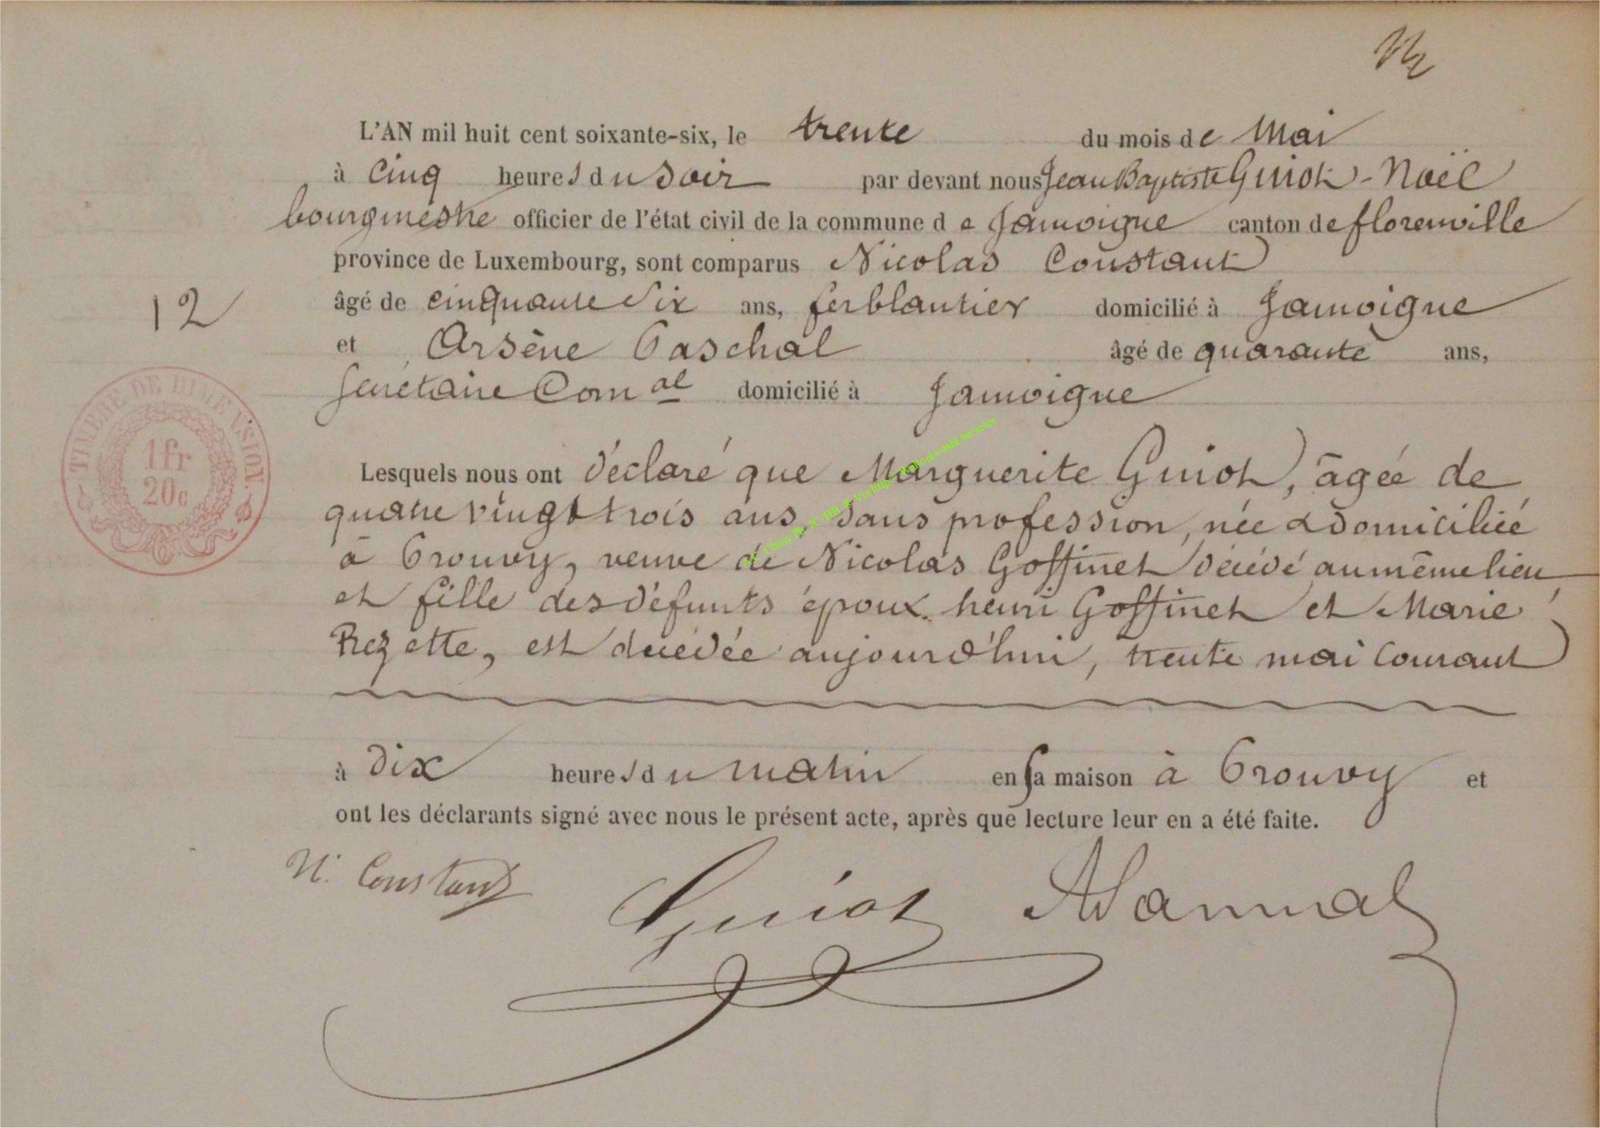 L'AN mil huit cent soixante-six, le trente du mois de Mai
à cinq heures du soir par devant nous Jean Baptiste Guiot-Noël
bourgmestre officier de l'état civil de la commune de Jamoigne canton de florenville
province de Luxembourg, sont comparus Nicolas Constant
12
âgé de cinquante six ans, ferblantier domicilié à Jamoigne
et Arsène Paschal âgé de quarante ans,
secrétaire Com al domicilié à Jamoigne
TIMBRE DE DIMENSION
1fr
20c
Lesquels nous ont déclaré que Marguerite Guiot, âgée de
quatre vingt trois ans, sans profession, née & domiciliée
à Prouvy, veuve de Nicolas Goffinet décédé au même lieu
et fille des défunts époux henri Goffinet et Marie
Rezette, est décédée aujourd'hui, trente mai courant
à dix heures du matin en sa maison à Prouvy et
ont les déclarants signé avec nous le présent acte, après que lecture leur en a été faite.
N. Constant Guiot